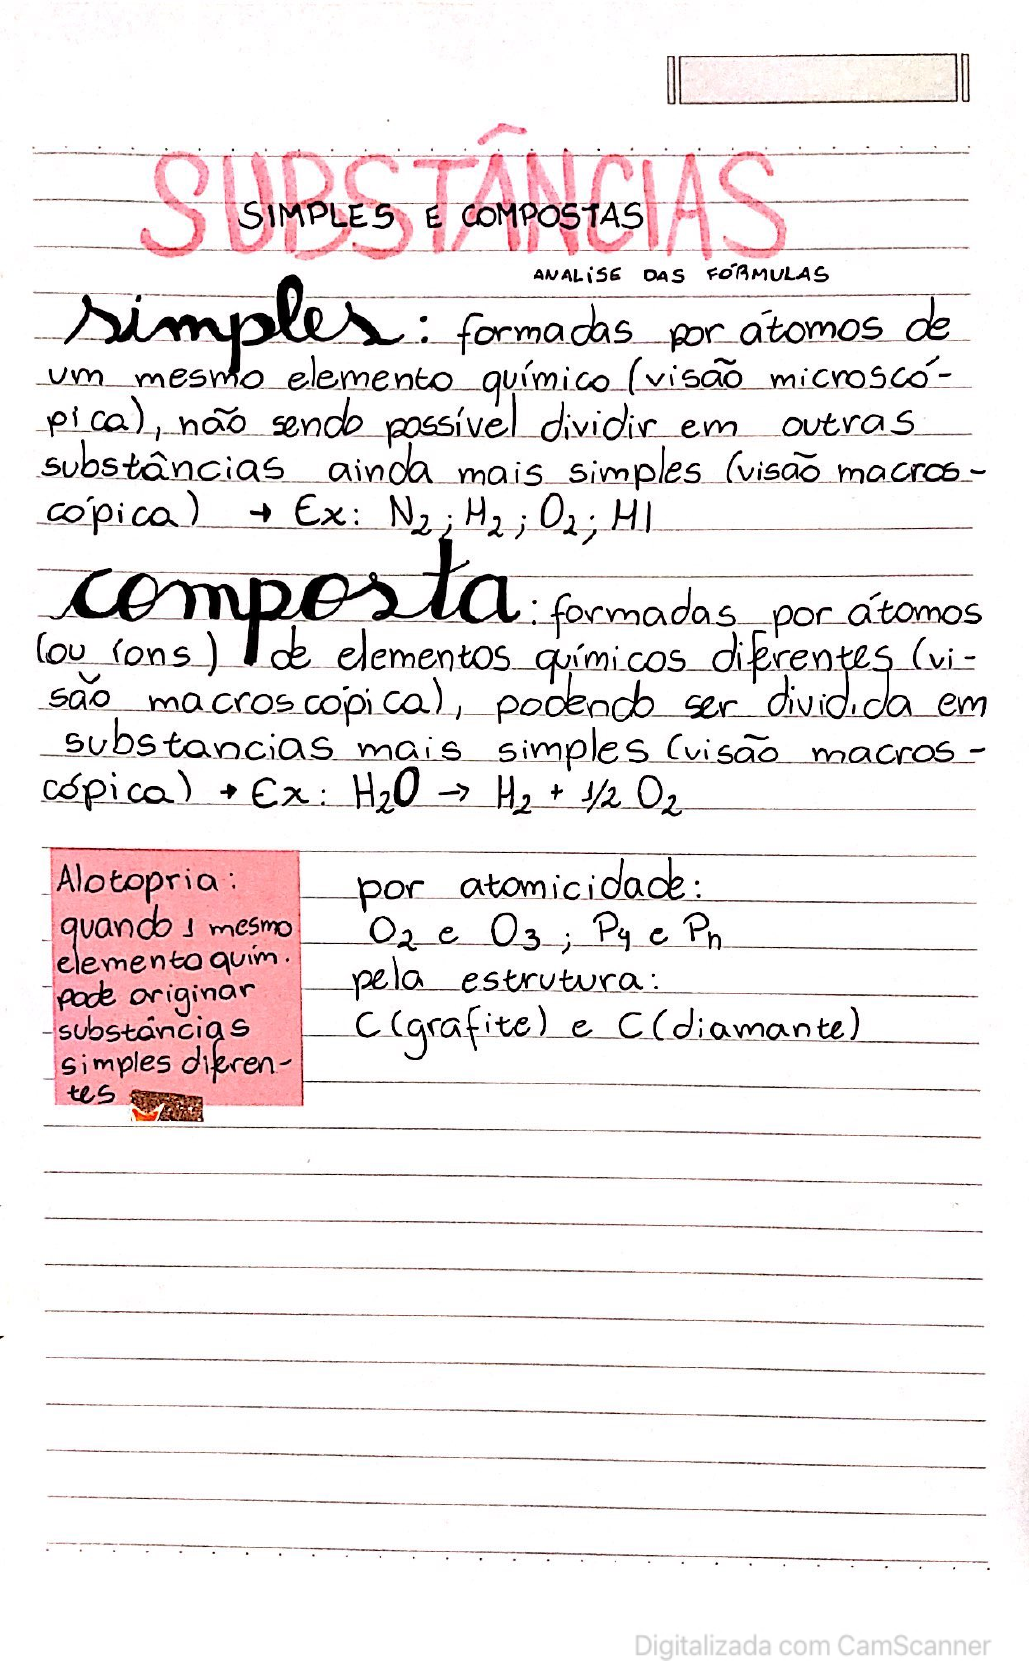 SUBSTÂNCIAS
SIMPLES E COMPOSTAS
ANALISE DAS FÓRMULAS
simples: formadas por átomos de
um mesmo elemento químico (visão microscó-
pica), não sendo possível dividir em outras
substâncias ainda mais simples (visão macros-
cópica) → Ex: N₂; H₂; O₂; HI
composta: formadas por átomos
(ou íons) de elementos químicos diferentes (vi-
são macroscópica), podendo ser dividida em
substancias mais simples (visão macros-
cópica) → Ex: H₂O → H₂ + 1/2 O₂
Alotopria:
quando 1 mesmo
elemento quím.
pode originar
substâncias
simples diferen-
tes
por atomicidade:
O₂ e O₃; P₄ e Pₙ
pela estrutura:
C(grafite) e C(diamante)
Digitalizada com CamScanner